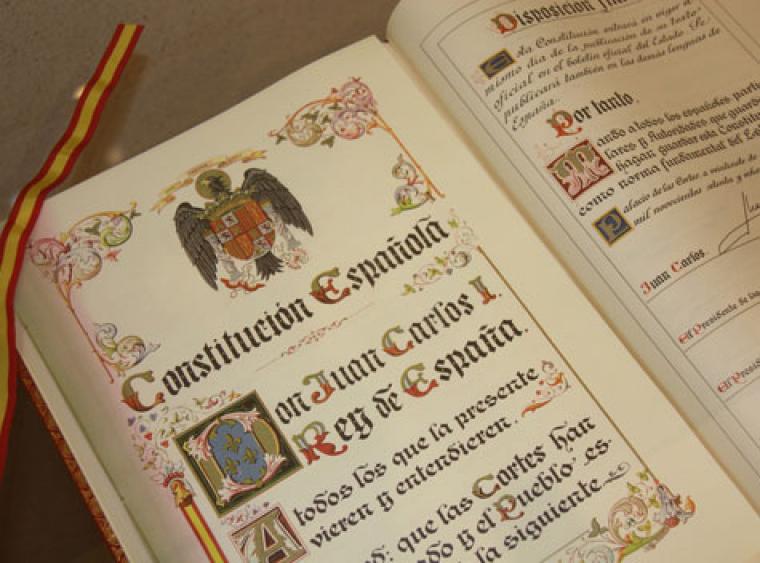 Constitución Española
Don Juan Carlos I.
Rey de España.
A todos los que la presente
vieren y entendieren.
que las Cortes han
y el Pueblo es-
la siguiente
Disposición
Esta Constitución entrará en vigor el
mismo día de la publicación de su texto
oficial en el boletín oficial del Estado. Se
publicará también en las demás lenguas de
España.
Por tanto.
Mando a todos los españoles, parti
lares y Autoridades que guarden
hagan guardar esta Constitu
como norma fundamental del
Palacio de las Cortes, a
mil novecientos setenta y
Juan Carlos.
El Presidente de las
El Presid